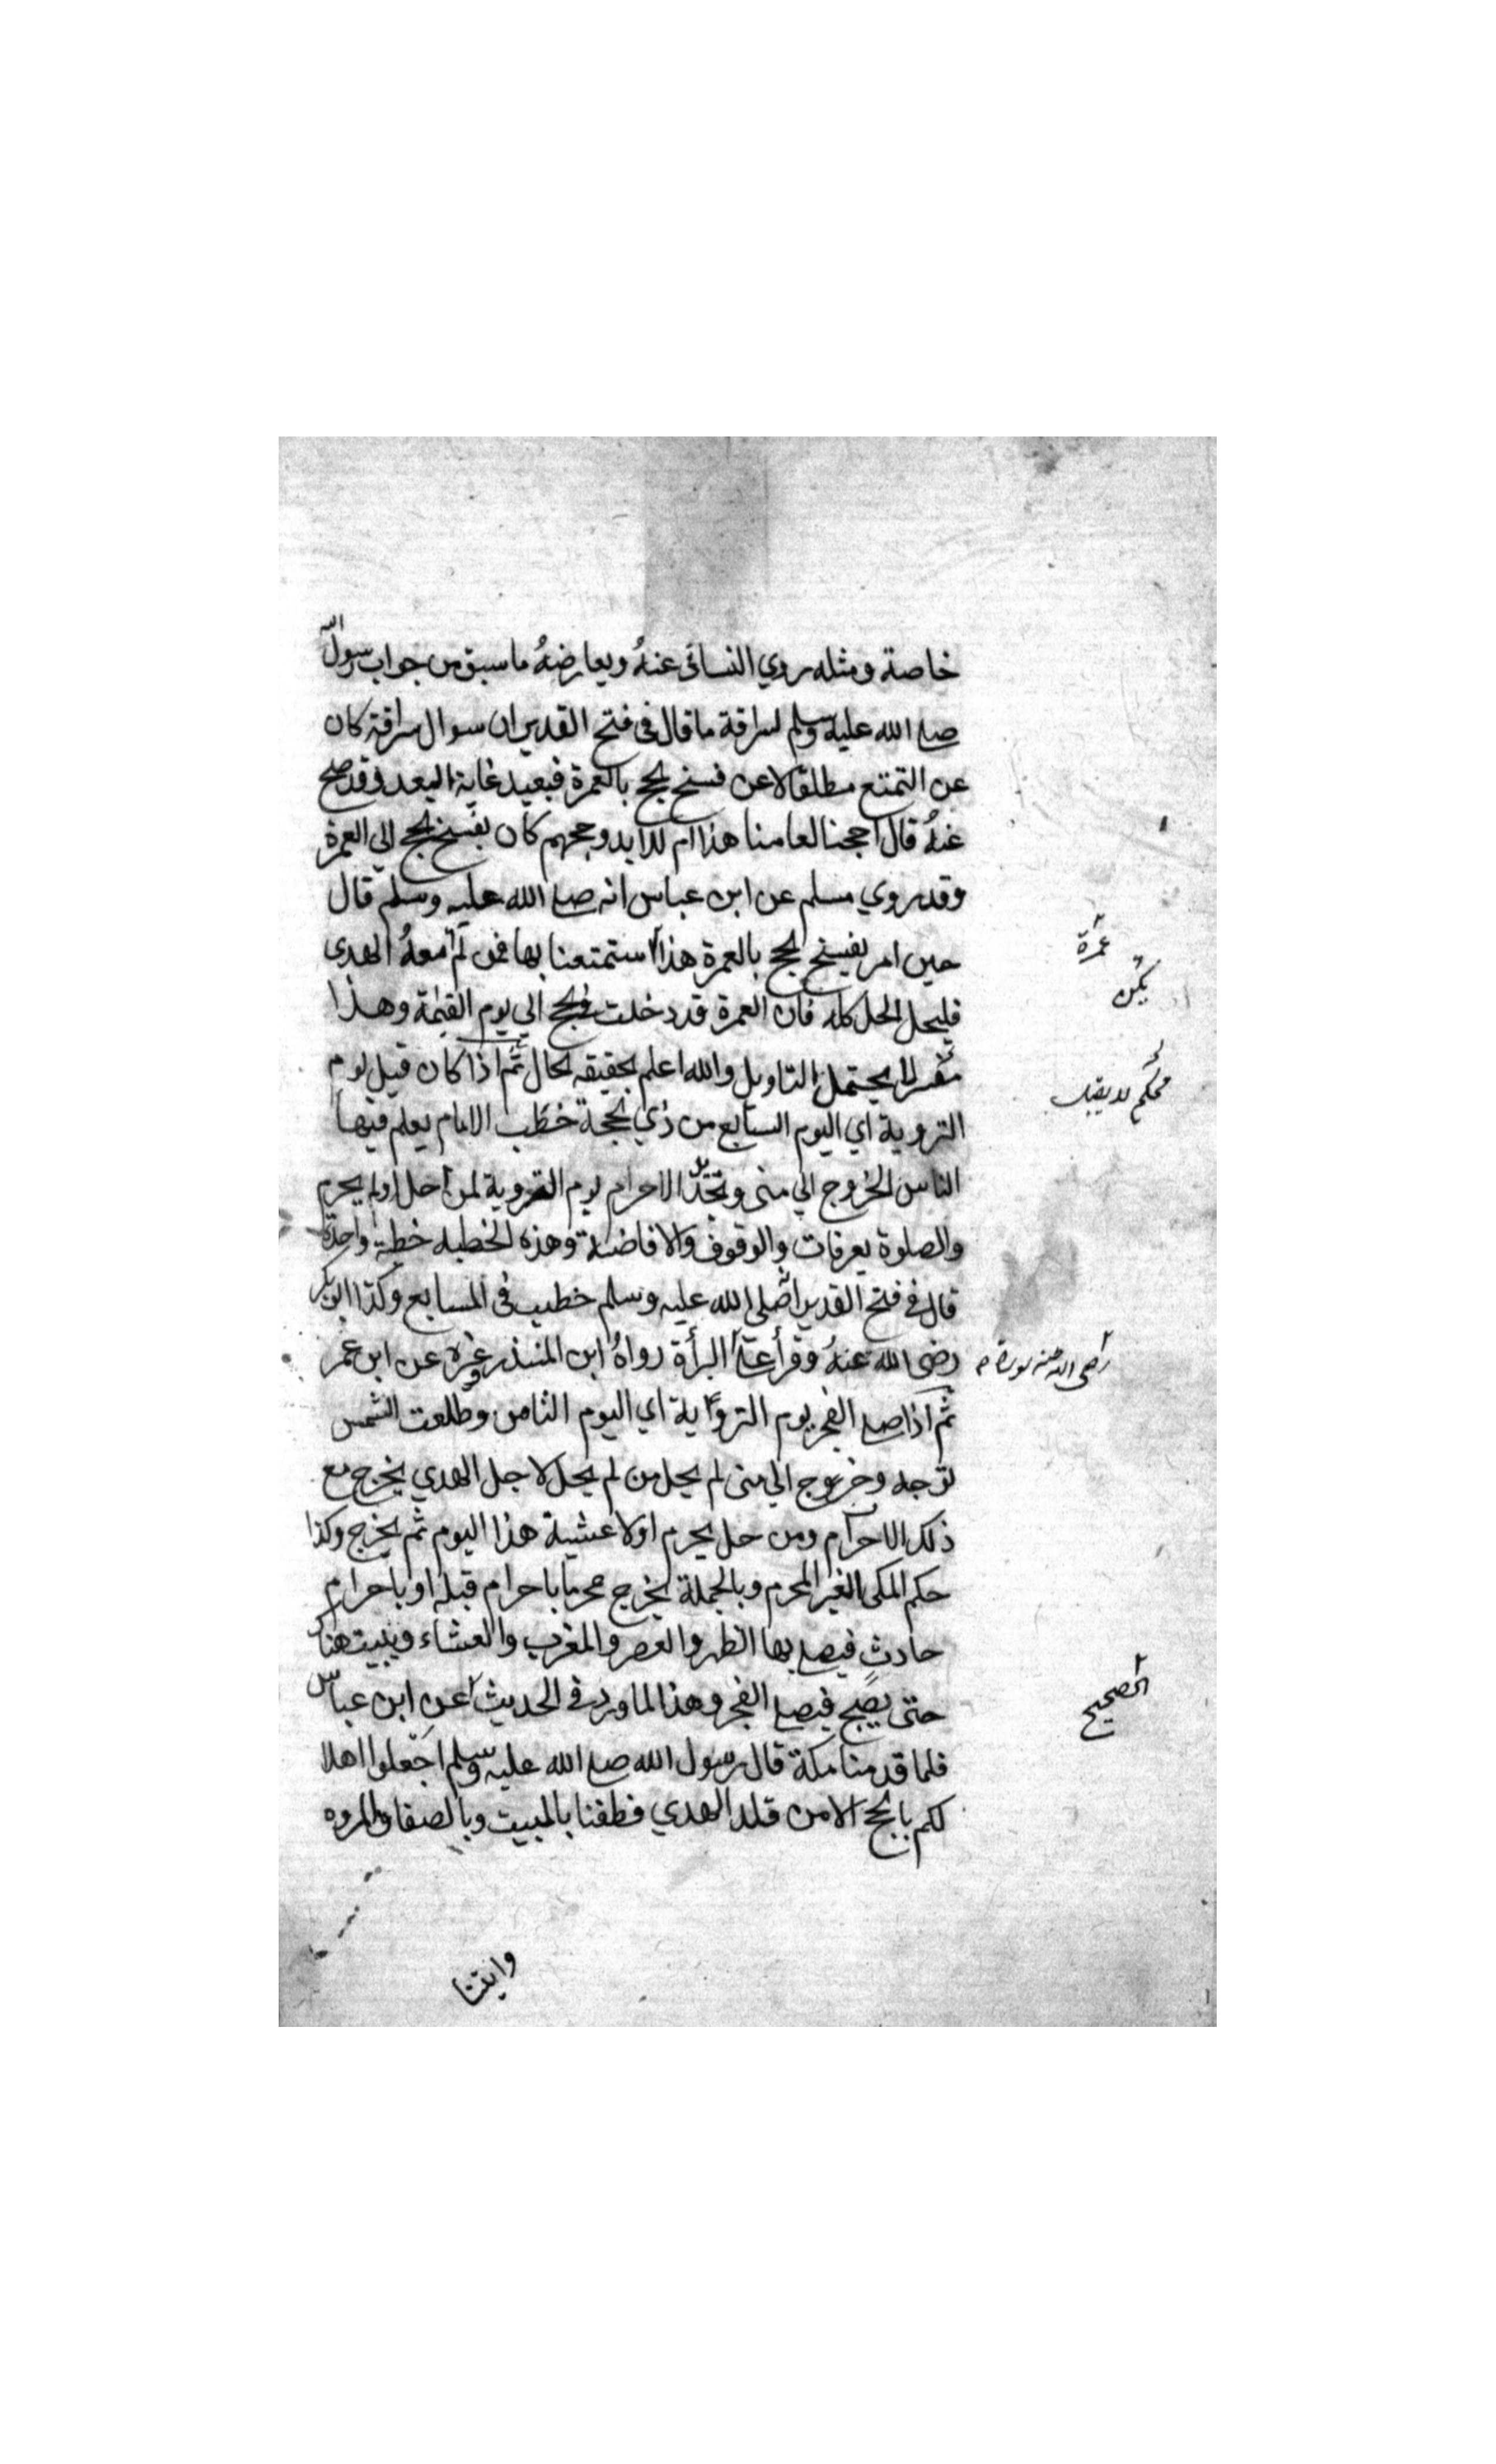 خاصة ومثله روي النسائي عنهُ ويعارضهُ ما سبق من جواب رسول الله
صلى الله عليه وسلم لسراقة ما قال في فتح القدير ان سوال سراقة كان
عن التمتع مطلقا لا عن فسخ الحج بالعمرة فبعيد غاية البعد وقد صح
عنهُ قال احججنا لعامنا هذا ام للابد وحجهم كان بفسخ الحج الي العمرة
وقد روي مسلم عن ابن عباس انه صلى الله عليه وسلم قال
حين امر بفسخ الحج بالعمرة هذا استمتعنا بها فمن لم معهُ الهدى
عمرة
يكن
فليحل الحل كله فان العمرة قد دخلت في الحج الي يوم القيمة وهذا
مفسر لا يحتمل التاويل والله اعلم بحقيقه الحال ثم اذا كان قبل يوم
محكم لا يقبل
التروية اي اليوم السابع من ذي الحجة خطب الامام يعلم فيها
الناس الخروج الي منى وتجديد الاحرام يوم التروية لمن احل اولم يحرم
والصلوة بعرفات والوقوف والافاضة وهذه الخطبه خطبة واحدة
قال في فتح القدير انه صلى الله عليه وسلم خطب في السابع وكذا ابو بكر
رضي الله عنهُ وقرأ علي البرأة رواهُ ابن المنذر وغيره عن ابن عمر
رضي الله عنه سورة
ثم اذا صلى الفجر يوم التروية اي اليوم الثامن وطلعت الشمس
توجه وخروج الي منى لم يحل من لم يحل لاجل الهدي يخرج مع
ذلك الاحرام ومن حل يحرم اولا عشية هذا اليوم ثم يخرج وكذا
حكم المكى الغير المحرم وبالجملة يخرج محرما باحرام قبله او باحرام
حادث فيصلي بها الظهر والعصر والمغرب والعشاء ويبيت هناك
حتى يصبح فيصلي الفجر وهذا لما ورد في الحديث عن ابن عباس
الصحيح
فلما قدمنا مكة قال رسول الله صلى الله عليه وسلم اجعلوا اهلا
لكم بالحج الا من قلد الهدي فطفنا بالبيت وبالصفا والمروه
واتينا